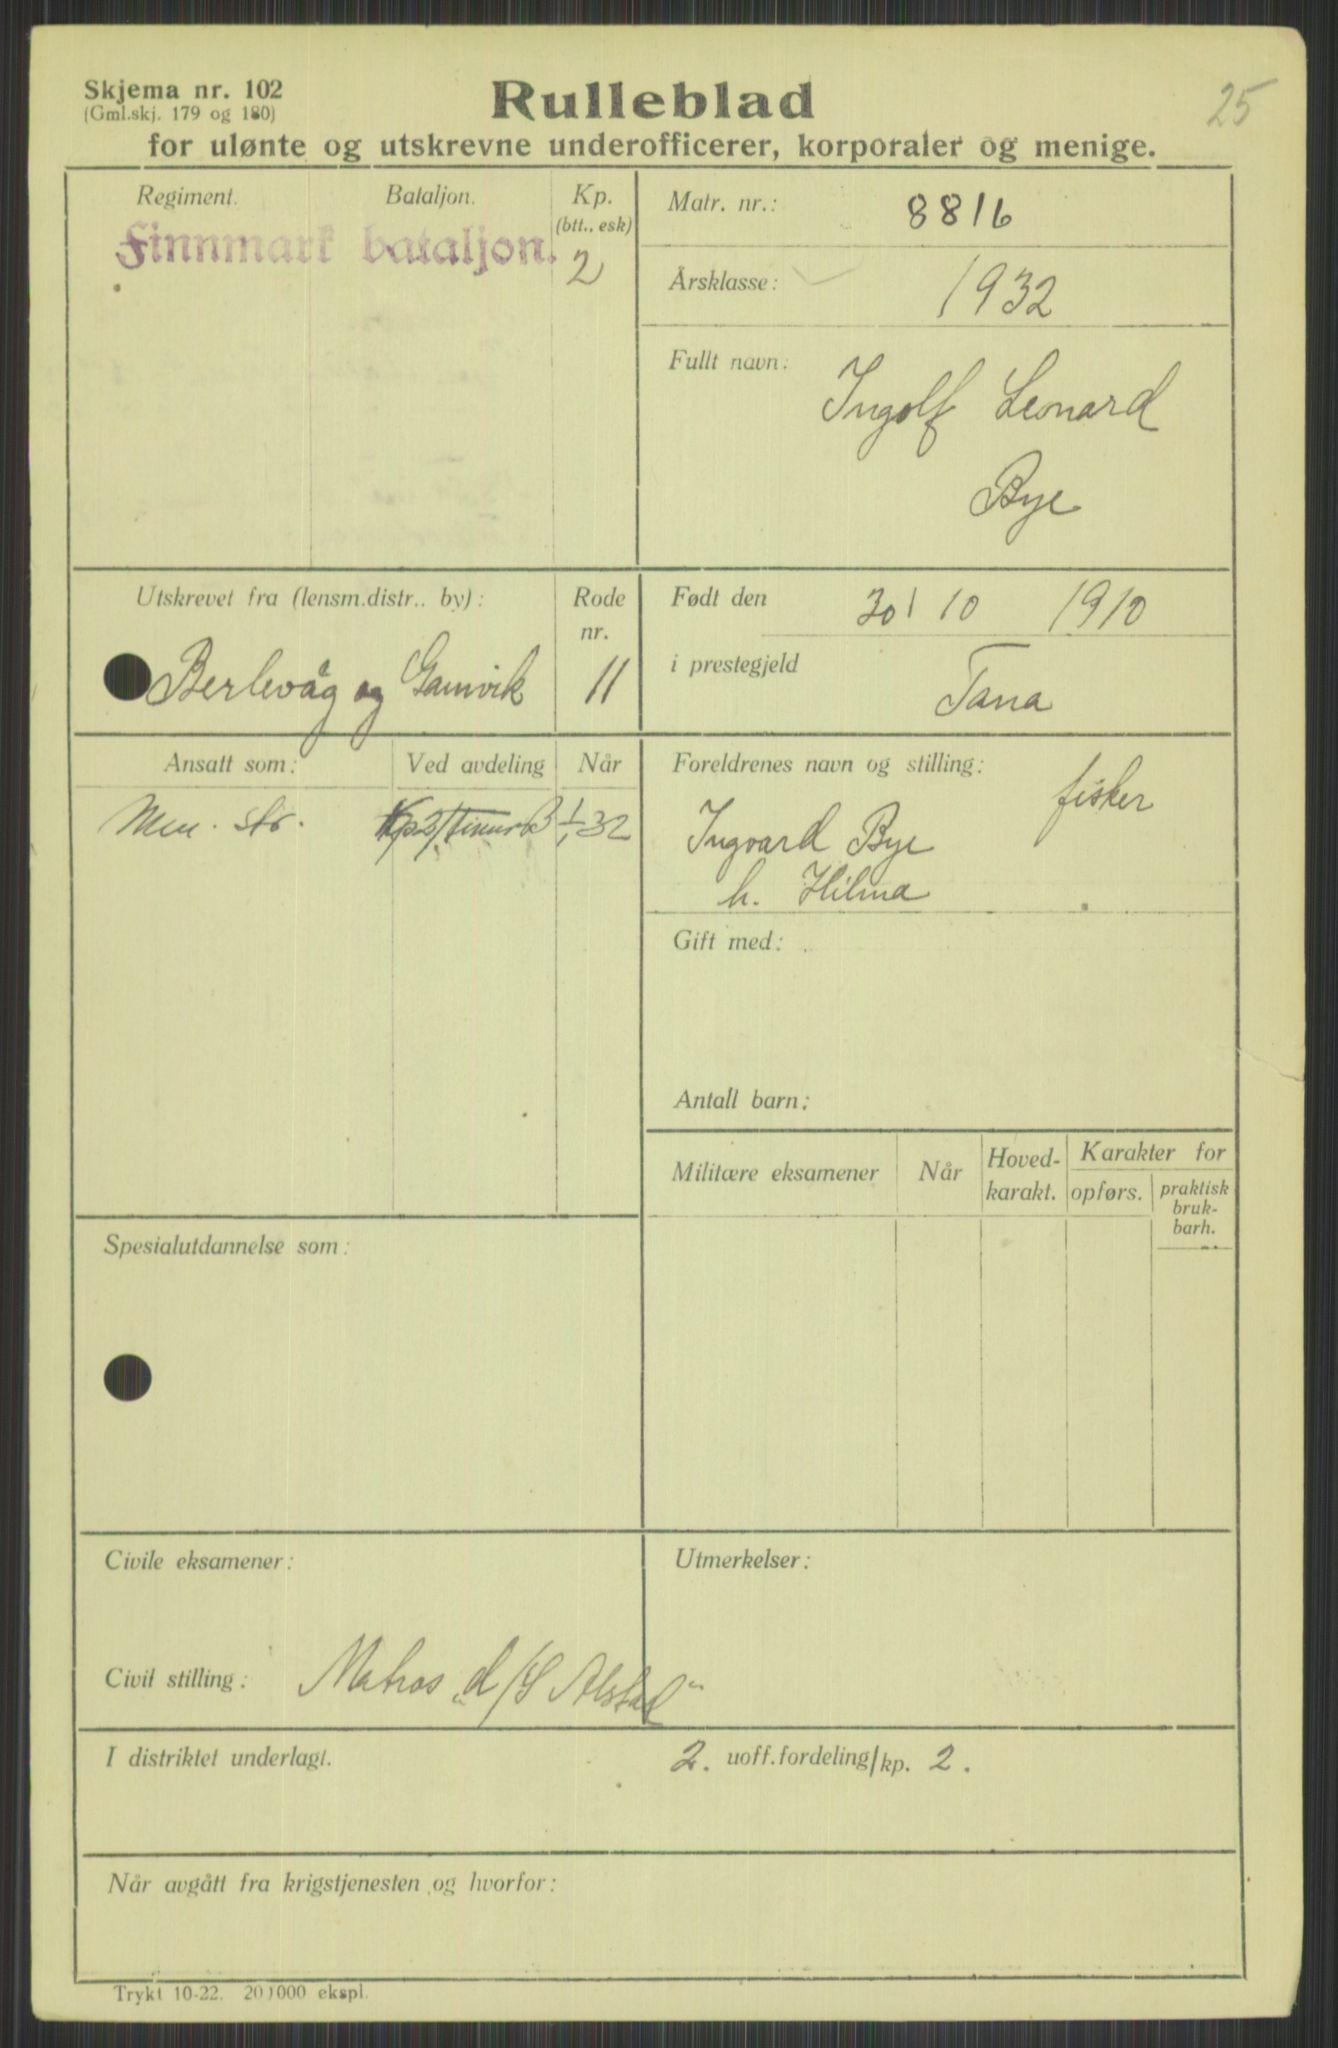 Skjema nr. 102
(Gml.skj. 179 og 180)
Rulleblad
25
for ulønte og utskrevne underofficerer, korporaler og menige.
Regiment.
Bataljon.
Kp.
(btt., esk)
Finnmark bataljon.
2
Matr. nr.:
8816
Årsklasse:
1932
Fullt navn:
Ingolf Leonard
Bye
Utskrevet fra (lensm.distr.. by):
Berlevåg og Gamvik
Rode
nr.
11
Født den
30/10 1910
i prestegjeld
Tana
Ansatt som:
Ved avdeling
Når
Men. str.
Kp2/Finnm B
1/1 32
Foreldrenes navn og stilling:
fisker
Ingvard Bye
h. Hilma
Gift med:
Antall barn:
Militære eksamener
Når
Hoved-
karakt.
Karakter for
opførs.
praktisk
bruk-
barh.
Spesialutdannelse som:
Civile eksamener:
Utmerkelser:
Civil stilling: Matros „d/S Alstad"
I distriktet underlagt.
2. uoff.fordeling/kp. 2.
Når avgått fra krigstjenesten og hvorfor:
Trykt 10-22. 20 000 ekspl.